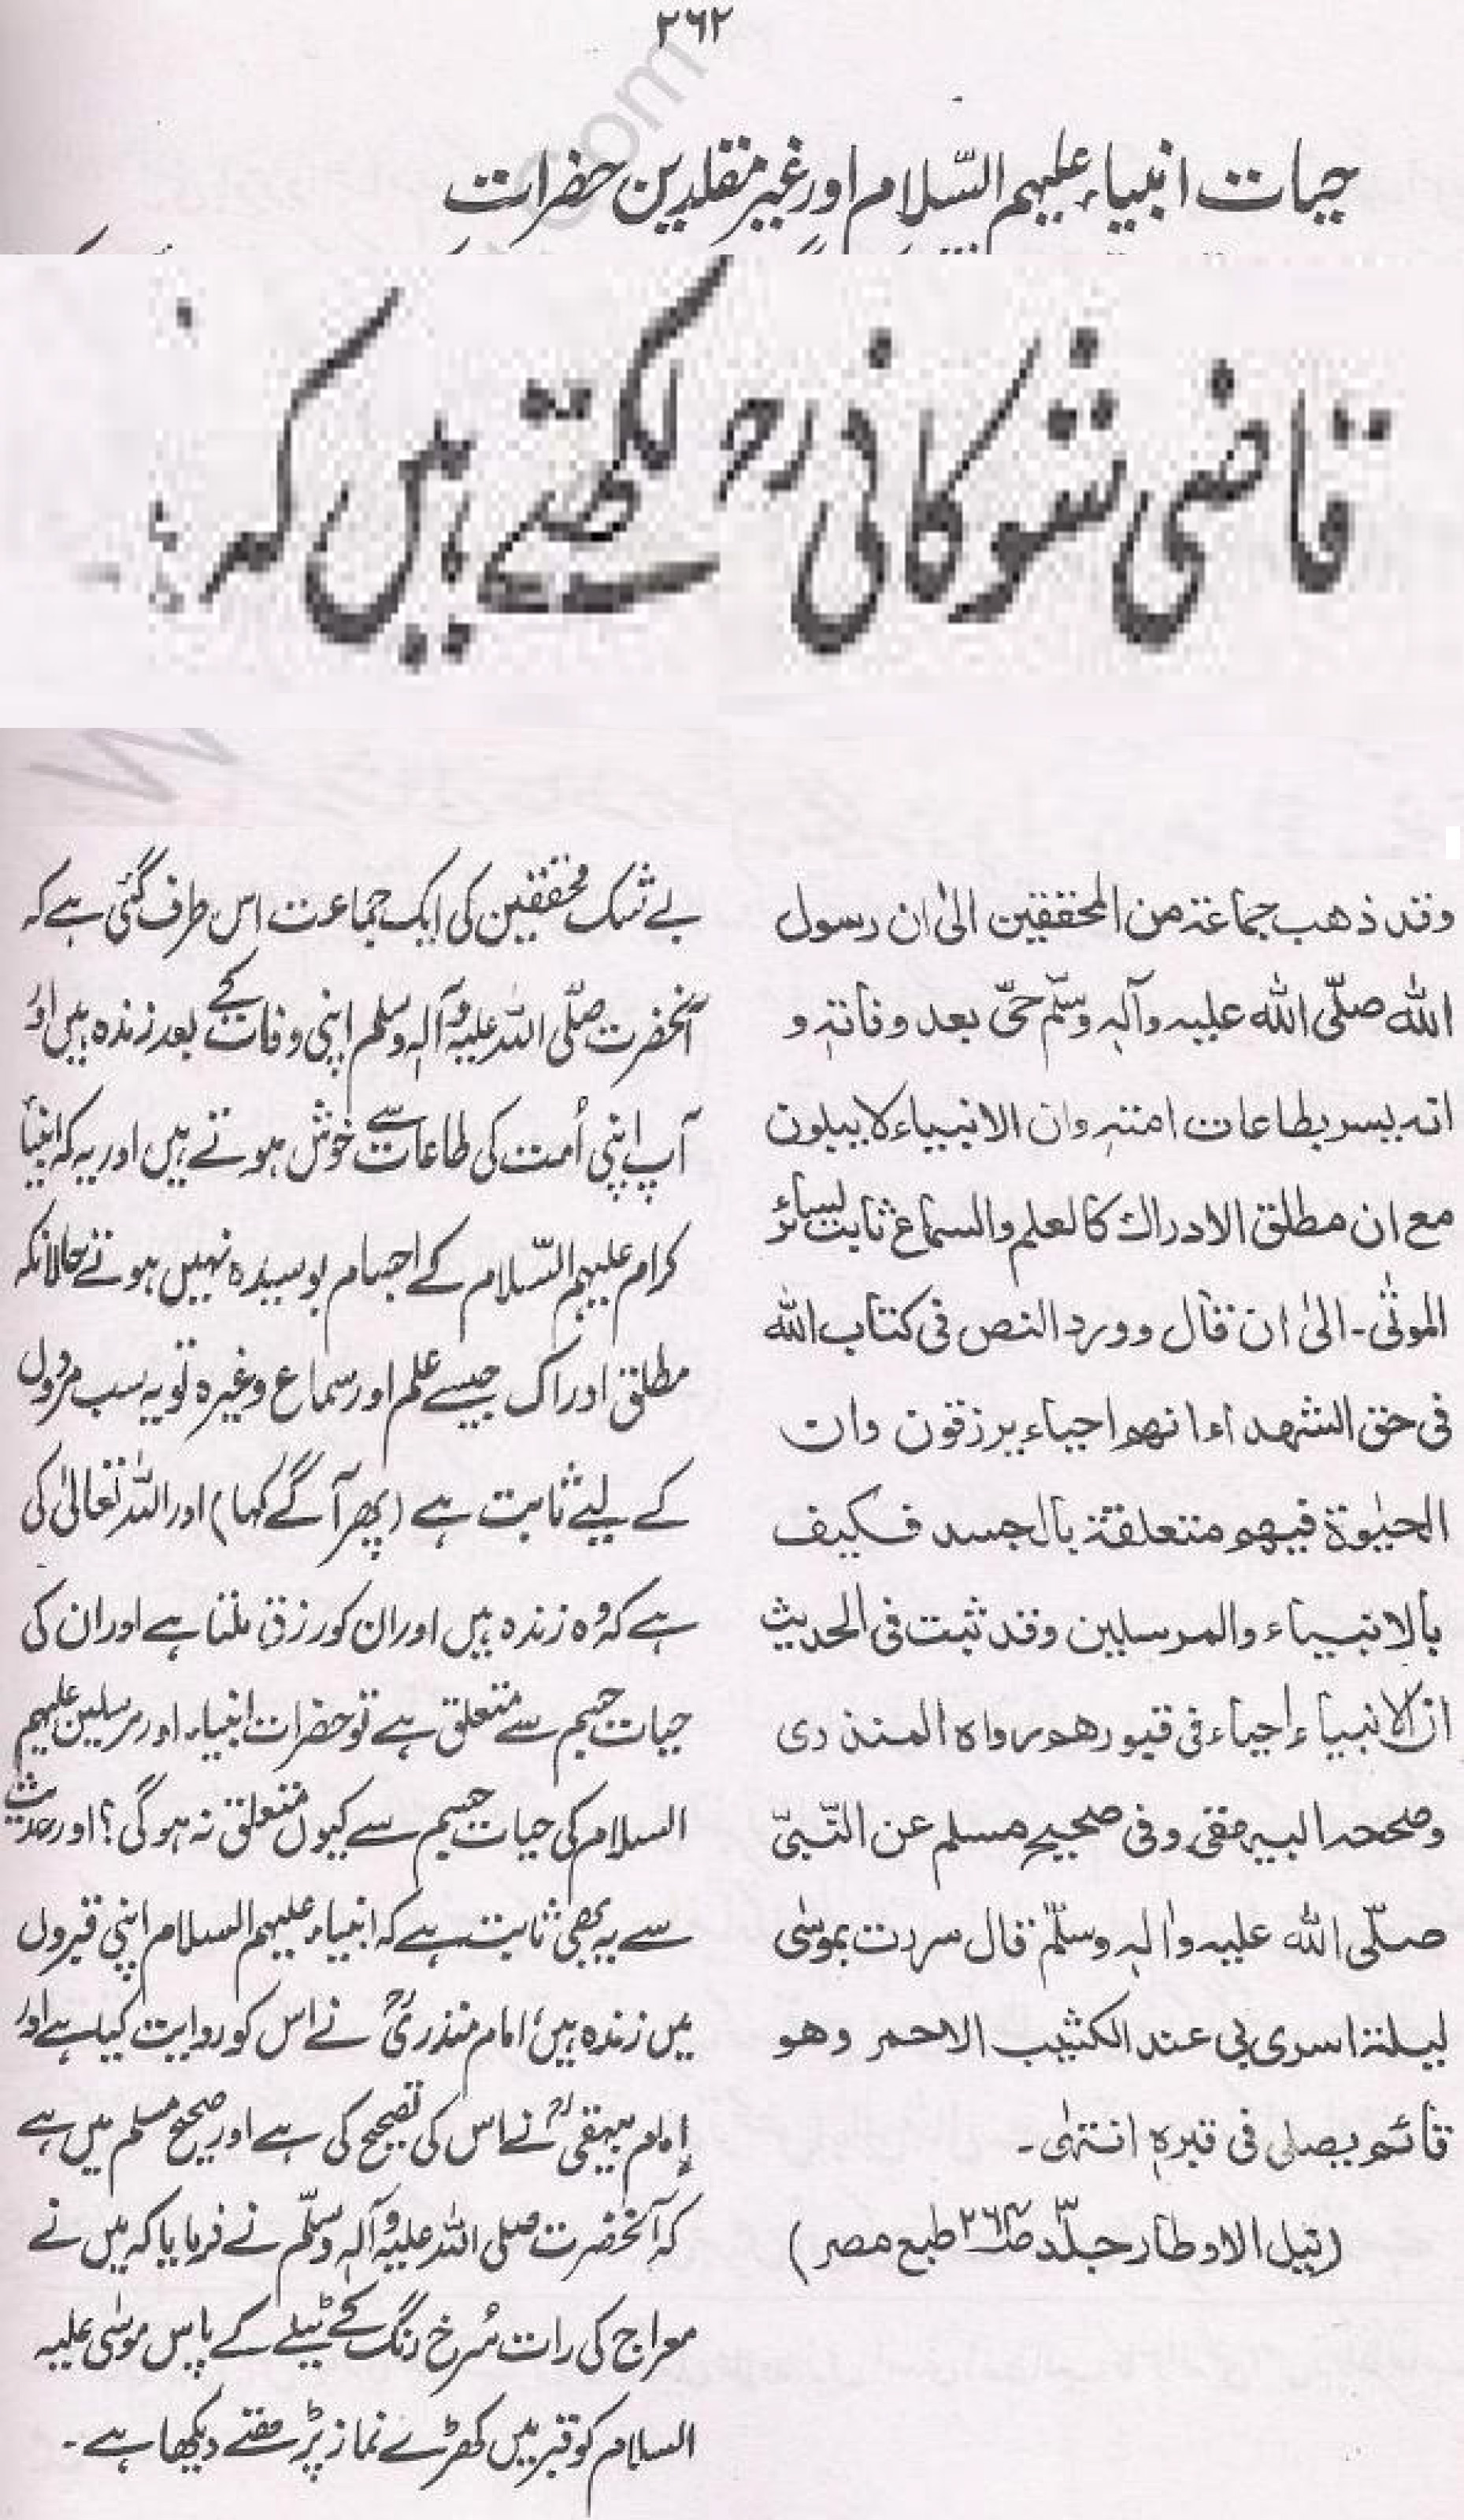 ۲۶۲
حیات انبیاء علیہم السّلام اور غیر مقلدین حضرات
قاضی شوکانی رح لکھتے ہیں کہ
وقد ذهب جماعة من المحققين الىٰ ان رسول
الله صلّى الله عليه وآلہٖ وسلّم حىّ بعد وفاتهٖ و
انه يسر بطاعات امتهٖ وان الانبياء لا يبلون
مع ان مطلق الادراك كالعلم والسماع ثابت لسائر
الموتٰى ۔ الىٰ ان قال وورد النص فى كتاب الله
فى حق الشهداء انهم احياء يرزقون وان
الحيٰوة فيهم متعلقة بالجسد فكيف
بالانبياء والمرسلين وقد ثبت فى الحديث
ان الانبياء احياء فى قبورهم رواه المنذرى
وصححه البيهقى وفى صحيح مسلم عن النّبىّ
صلّى الله عليه واٰلہٖ وسلّم قال مررت بموسٰى
ليلة اسرى بى عند الكثيب الاحمر وهو
قائم يصلى فى قبرهٖ انتهٰى ۔
(نيل الاوطار جلد ص۲۶۴ طبع مصر)
بے شک محققین کی ایک جماعت اس طرف گئی ہے کہ
آنحضرت صلّی اللہ علیہ وآلہٖ وسلم اپنی وفات کے بعد زندہ ہیں اور
آپ اپنی اُمت کی طاعات سے خوش ہوتے ہیں اور یہ کہ انبیاء
کرام علیہم السّلام کے اجسام بوسیدہ نہیں ہوتے حالانکہ
مطلق ادراک جیسے علم اور سماع وغیرہ تو یہ سب مردوں
کے لیے ثابت ہے (پھر آگے کہا) اور اللہ تعالیٰ کی
ہے کہ وُہ زندہ ہیں اور ان کو رزق ملتا ہے اور ان کی
حیات جسم سے متعلق ہے تو حضرات انبیاء اور مرسلین علیہم
السلام کی حیات جسم سے کیوں متعلق نہ ہو گی؟ اور حدیث
سے یہ بھی ثابت ہے کہ انبیاء علیہم السلام اپنی قبروں
میں زندہ ہیں، امام منذریؒ نے اس کو روایت کیا ہے اور
امام بیہقیؒ نے اس کی تصحیح کی ہے اور صحیح مسلم میں ہے
کہ آنحضرت صلی اللہ علیہ وآلہٖ وسلّم نے فرمایا کہ میں نے
معراج کی رات سُرخ رنگ کے ٹیلے کے پاس موسٰی علیہ
السلام کو قبر میں کھڑے نماز پڑھتے دیکھا ہے ۔